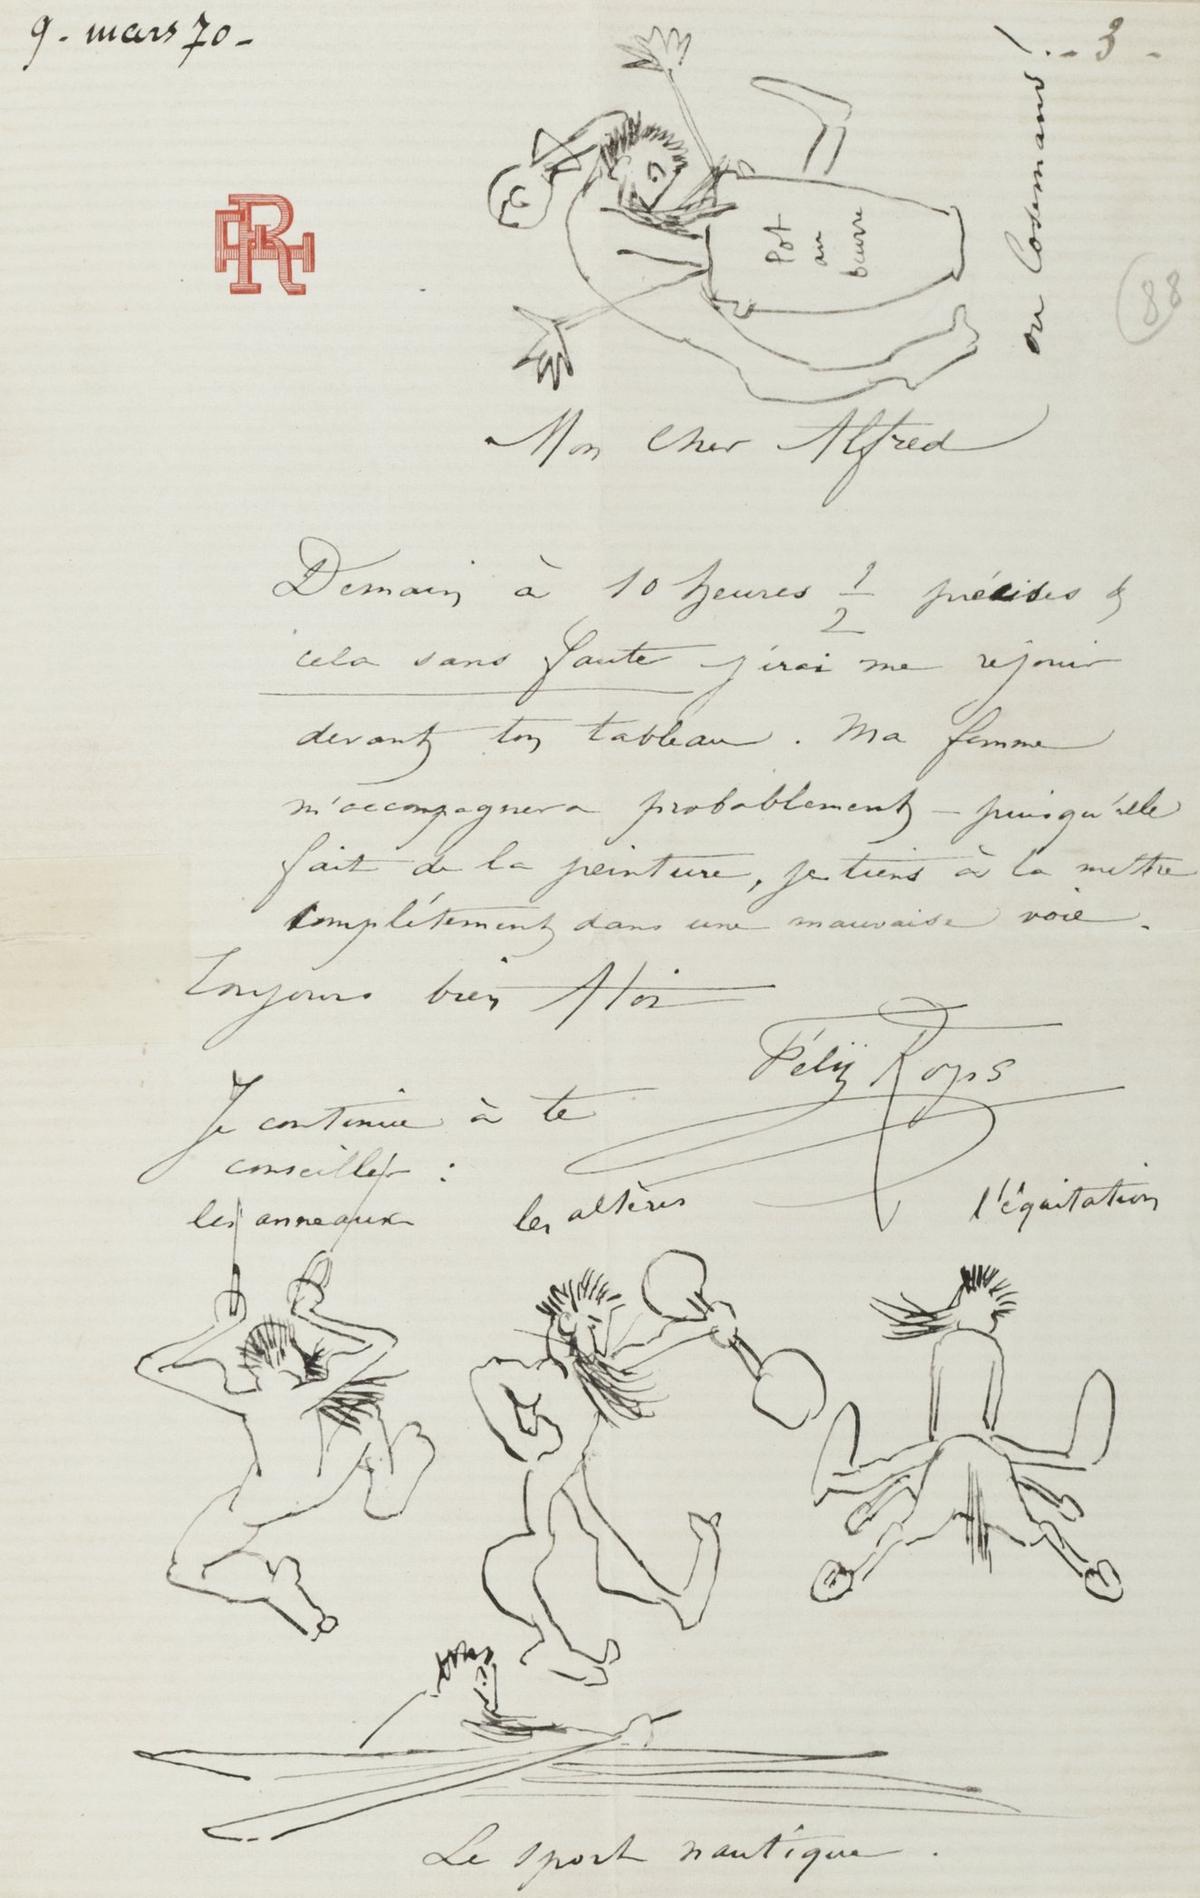 9 - mars 70 -
- 3 -
ou Cosemans!
Pot
au
beurre
RH
(88
Mon Cher Alfred
Demain à 10 heures 1/2 précises &
cela sans faute j'irai me réjouir
devant ton tableau . Ma femme
m'accompagnera probablement – puisqu'elle
fait de la peinture, je tiens à la mettre
complétement dans une mauvaise voie .
Toujours bien à Toi
Félix Rops
Je continue à te
conseiller :
les anneaux
les altères
l'équitation
Le sport nautique .